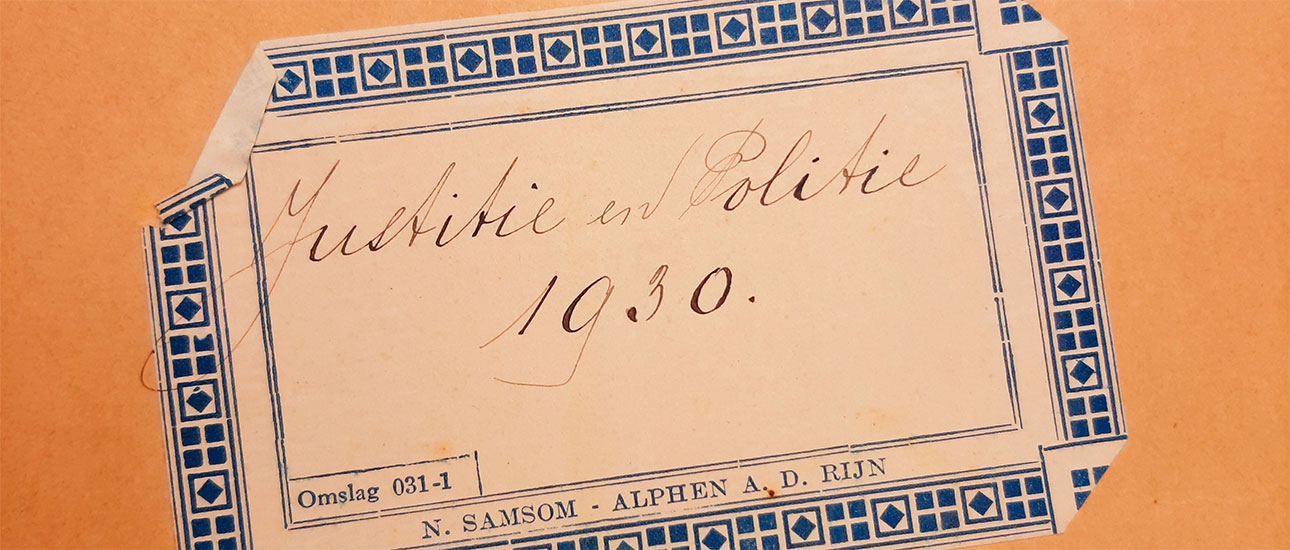 Justitie en Politie
1930.
Omslag 031-1
N. SAMSOM - ALPHEN A. D. RIJN